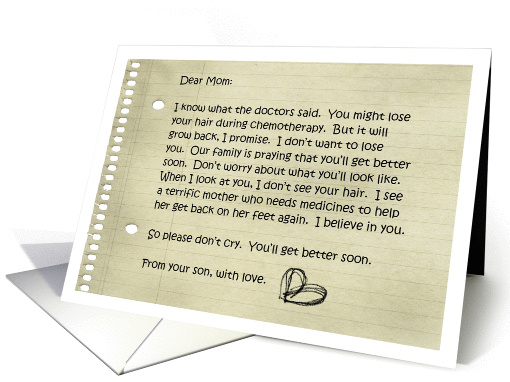 Dear Mom:
I know what the doctors said. You might lose
your hair during chemotherapy. But it will
grow back, I promise. I don't want to lose
you. Our family is praying that you'll get better
soon. Don't worry about what you'll look like.
When I look at you, I don't see your hair. I see
a terrific mother who needs medicines to help
her get back on her feet again. I believe in you.
So please don't cry. You'll get better soon.
From your son, with love.